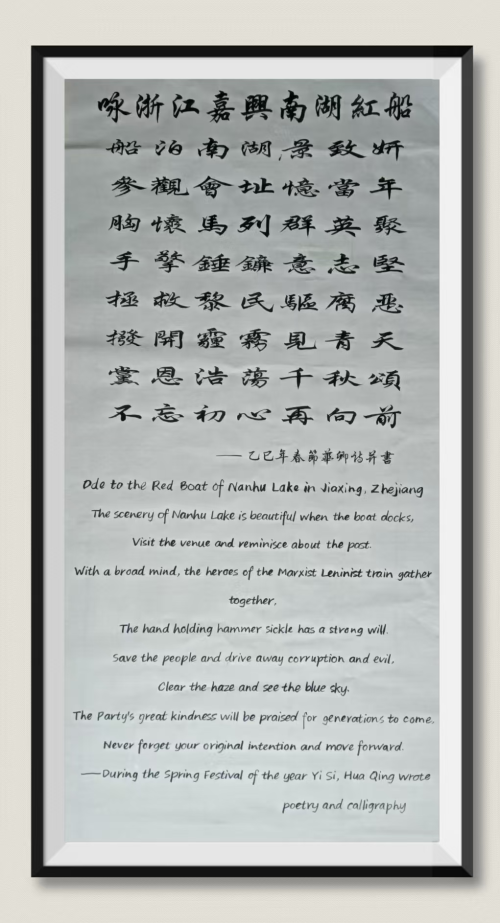 咏浙江嘉興南湖紅船
船泊南湖景致妍
參觀會址憶當年
胸懷馬列群英聚
手擎錘鐮意志堅
拯救黎民驅腐惡
撥開霾霧見青天
黨恩浩蕩千秋頌
不忘初心再向前
——乙巳年春節華卿詩并書
Ode to the Red Boat of Nanhu Lake in Jiaxing, Zhejiang
The scenery of Nanhu Lake is beautiful when the boat docks,
Visit the venue and reminisce about the past.
With a broad mind, the heroes of the Marxist Leninist train gather
together,
The hand holding hammer sickle has a strong will.
Save the people and drive away corruption and evil,
Clear the haze and see the blue sky.
The Party's great kindness will be praised for generations to come.
Never forget your original intention and move forward.
——During the Spring Festival of the year Yi Si, Hua Qing wrote
poetry and calligraphy